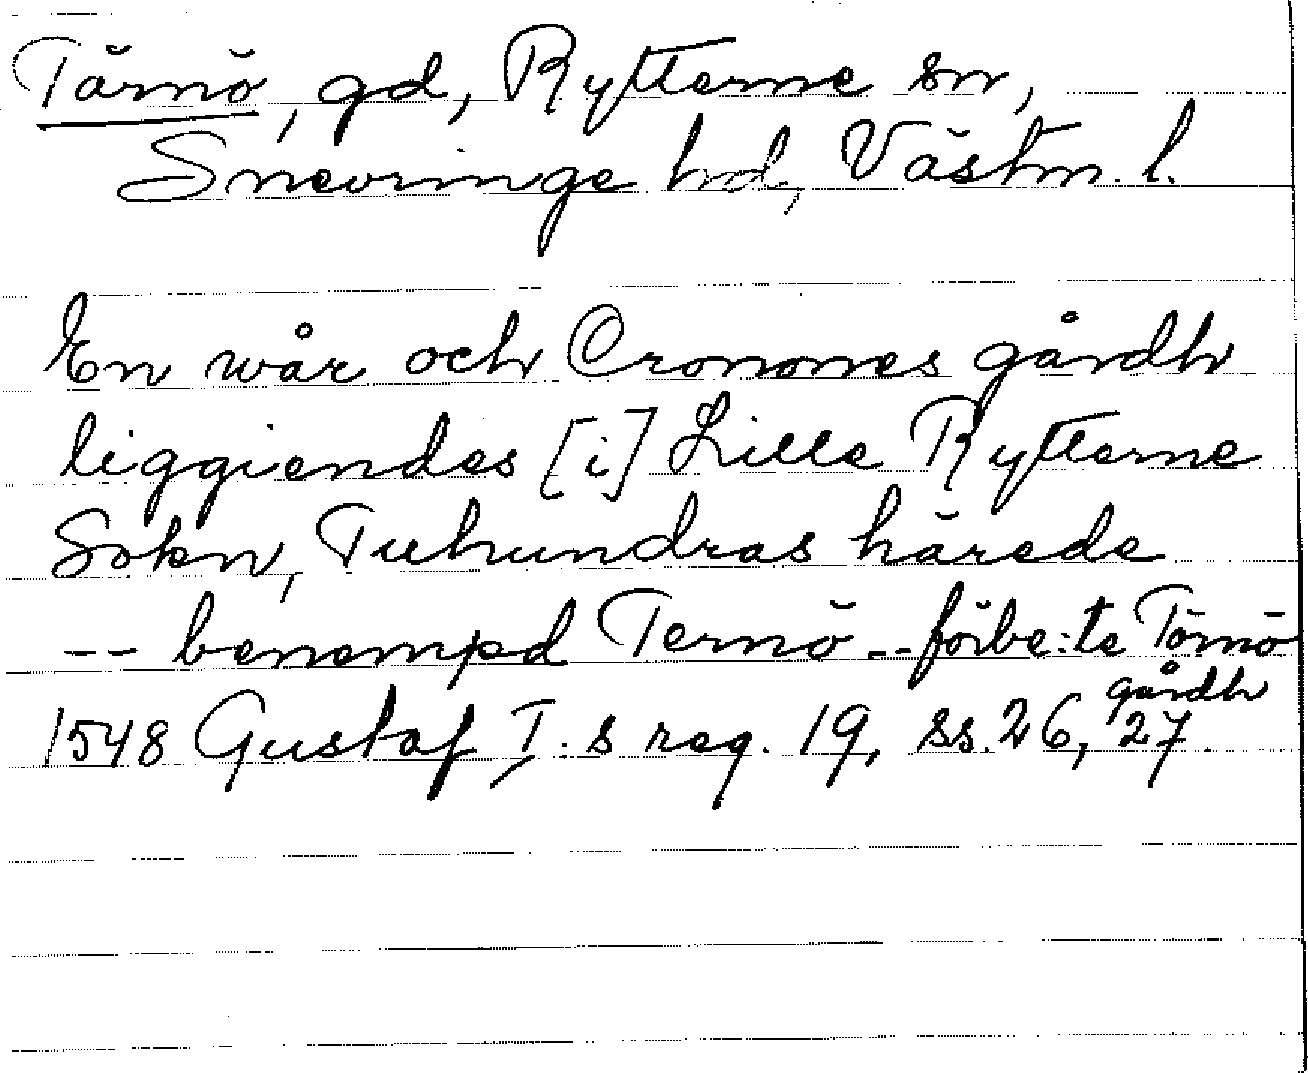 Tärnö, gd, Rytterne sn,
Snevringe hd, Västm. l.
En wår och Cronones gårdh
liggiendes [i] Lille Rytterne
Sokn, Tuhundras härede
-- benempd Ternö -- förbe:te Törnö
gårdh
1548 Gustaf I:s reg. 19, ss. 26, 27.